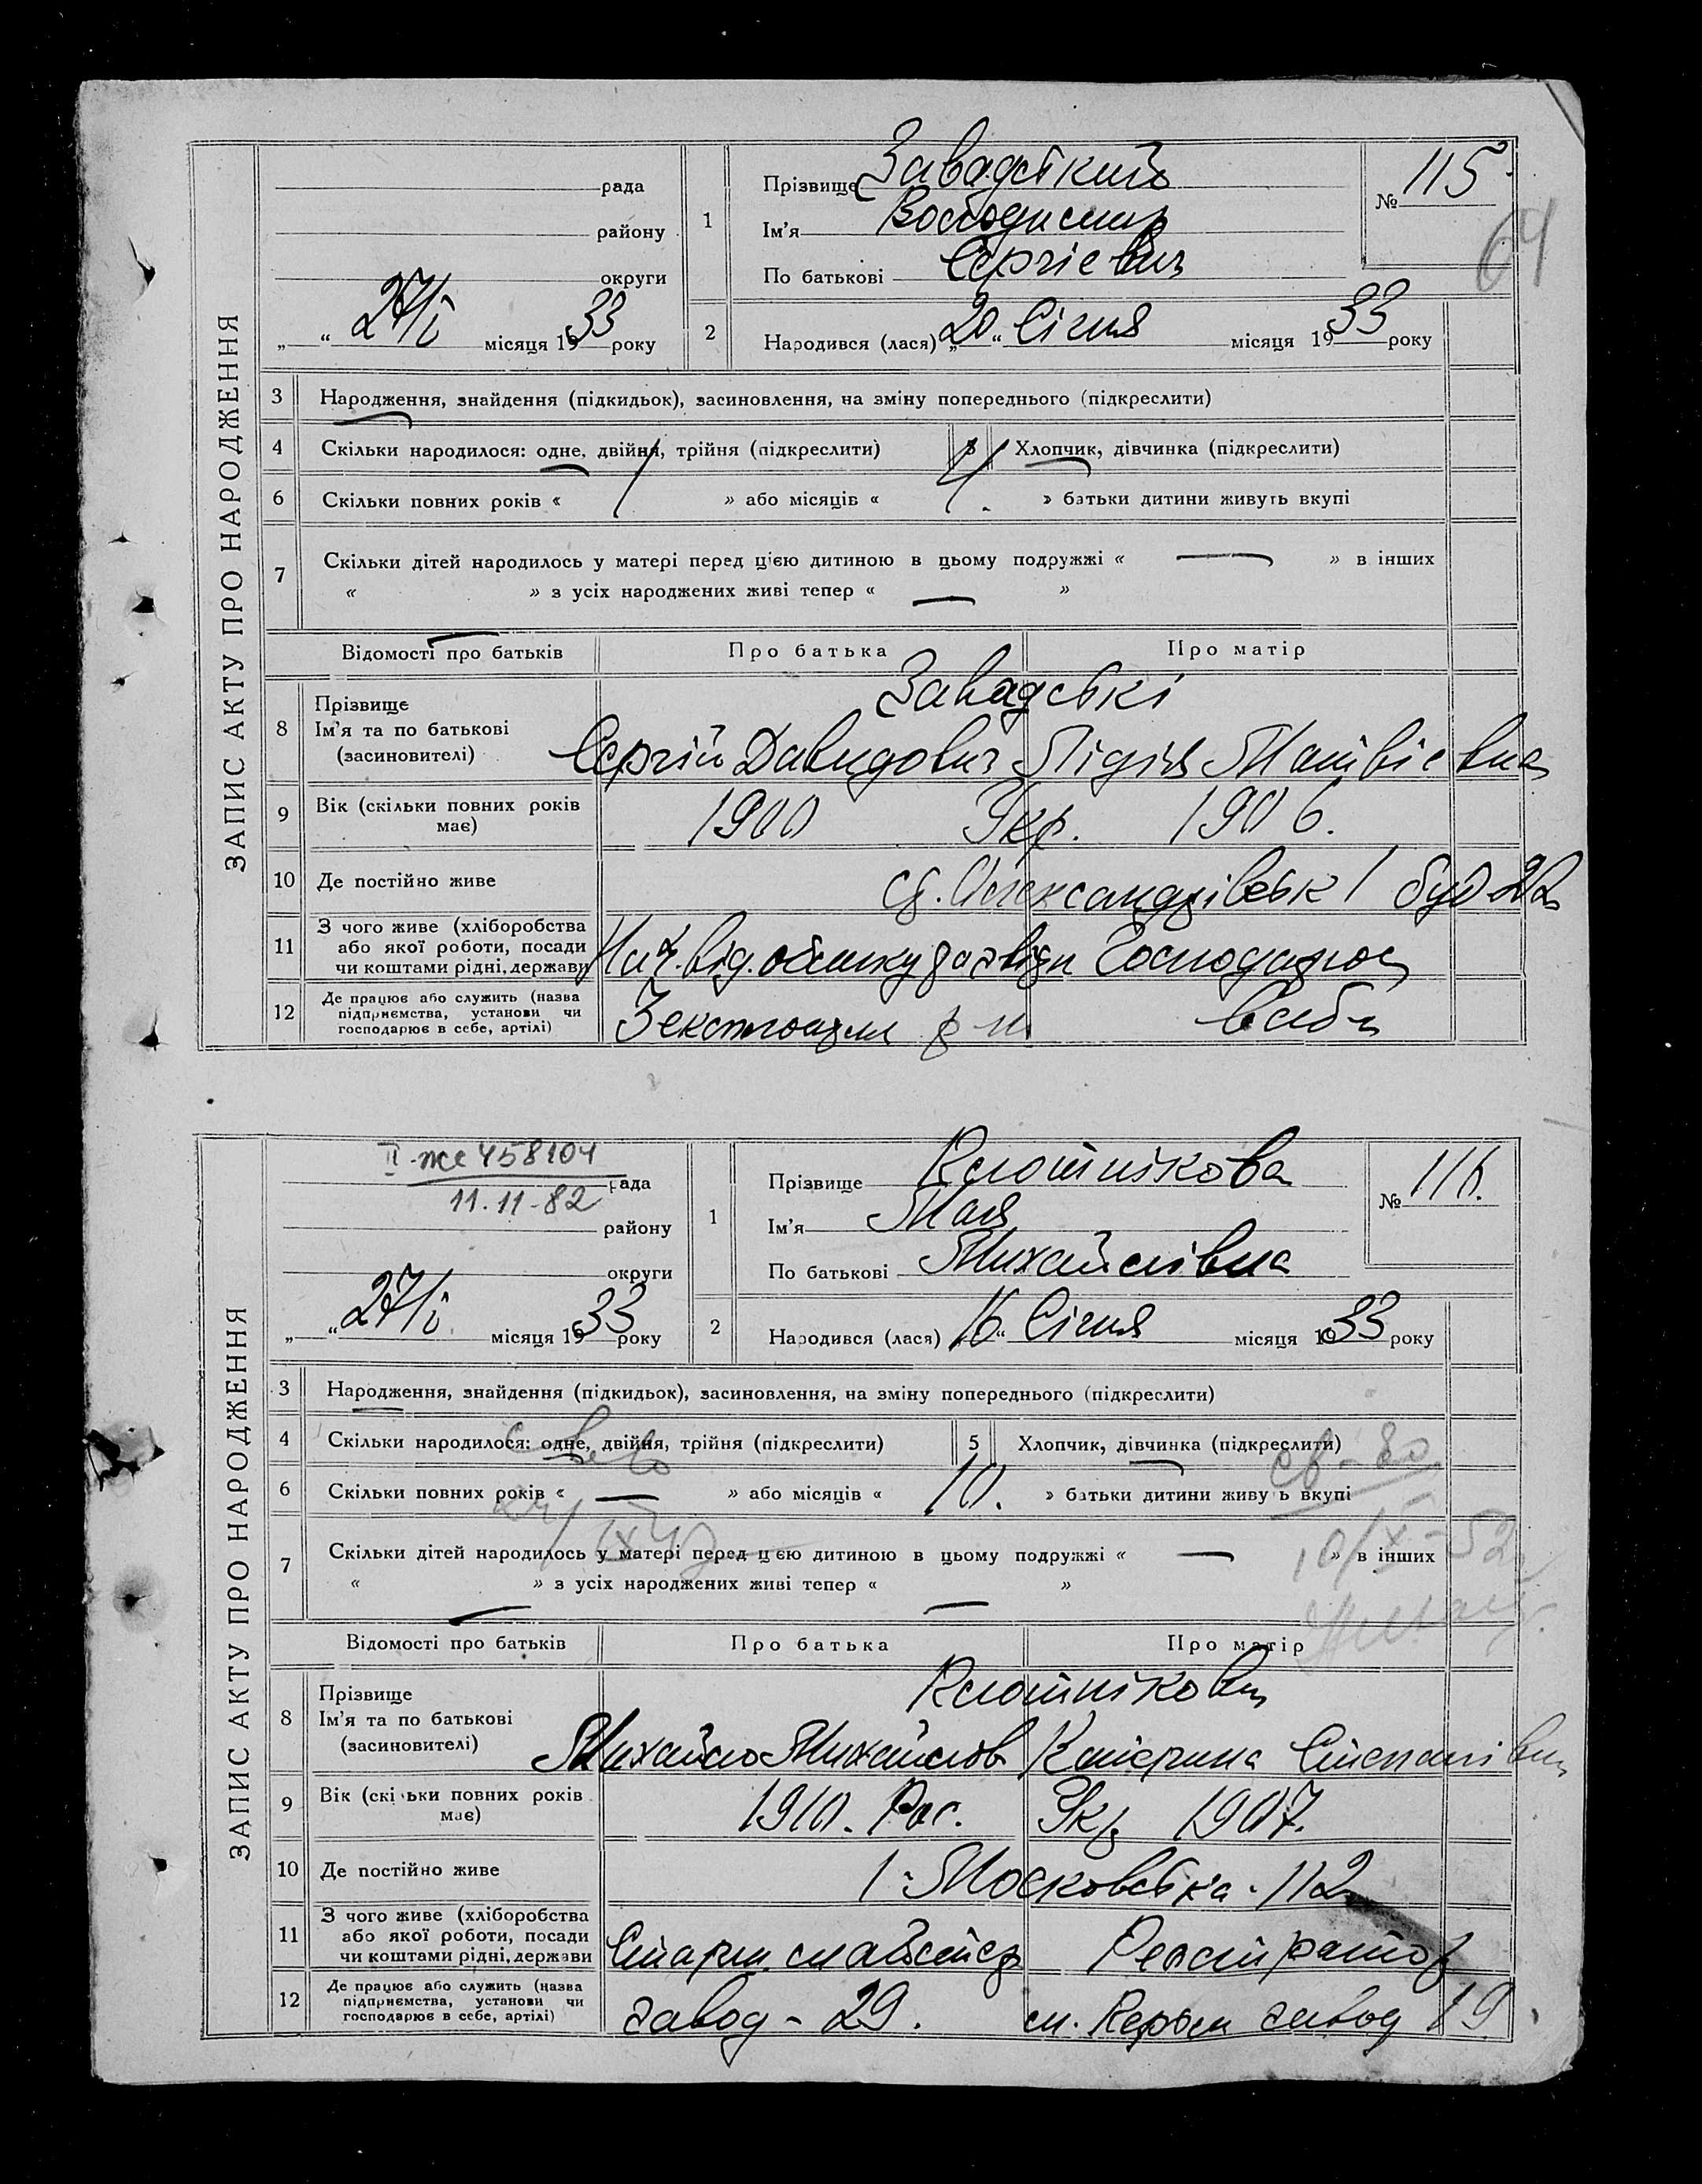 ЗАПИС АКТУ ПРО НАРОДЖЕННЯ
рада
району
округи
„ “ 27/I місяця 1933 року
1 Прізвище Завадський
Ім'я Володимир
По батькові Сергієвич
№ 115
64
2 Народився (лася) „20“ Січня місяця 1933 року
3 Народження, знайдення (підкидьок), засиновлення, на зміну попереднього (підкреслити)
4 Скільки народилося: одне, двійня, трійня (підкреслити) 5 Хлопчик, дівчинка (підкреслити)
6 Скільки повних років « » або місяців « » батьки дитини живуть вкупі
7 Скільки дітей народилось у матері перед цією дитиною в цьому подружжі « — » в інших
« » з усіх народжених живі тепер « — »
Відомості про батьків Про батька Про матір
8 Прізвище
Ім'я та по батькові
(засиновителі)
Завадські
Сергій Давидович Лідія Матвієвна
9 Вік (скільки повних років має) 1900 Укр. 1906.
10 Де постійно живе ст. Олександрівськ 1 буд 22
11 З чого живе (хліборобства
або якої роботи, посади
чи коштами рідні, держави
Нач. від. Господарює
12 Де працює або служить (назва
підприємства, установи чи
господарює в себе, артілі)
ЗАПИС АКТУ ПРО НАРОДЖЕННЯ
II-же 458104
11.11-82
рада
району
округи
„ “ 27/I місяця 1933 року
1 Прізвище Клотнікова
Ім'я Мая
По батькові Михайлівна
№ 116.
2 Народився (лася) „16“ Січня місяця 1933 року
3 Народження, знайдення (підкидьок), засиновлення, на зміну попереднього (підкреслити)
4 Скільки народилося: одне, двійня, трійня (підкреслити) 5 Хлопчик, дівчинка (підкреслити)
6 Скільки повних років « — » або місяців « 10. » батьки дитини живу ь вкупі
10/X-52
7 Скільки дітей народилось у матері перед цією дитиною в цьому подружжі « — » в інших
« » з усіх народжених живі тепер « — »
Відомості про батьків Про батька Про матір
8 Прізвище
Ім'я та по батькові
(засиновителі)
Клотнікови
Михайло Михайлов Катерина Степанівна
9 Вік (скільки повних років має) 1910. Рос. Укр 1907.
10 Де постійно живе 1-Московська-112
11 З чого живе (хліборобства
або якої роботи, посади
чи коштами рідні, держави
Старш. майстер Реєстратор
12 Де працює або служить (назва
підприємства, установи чи
господарює в себе, артілі)
завод-29. завод 19.